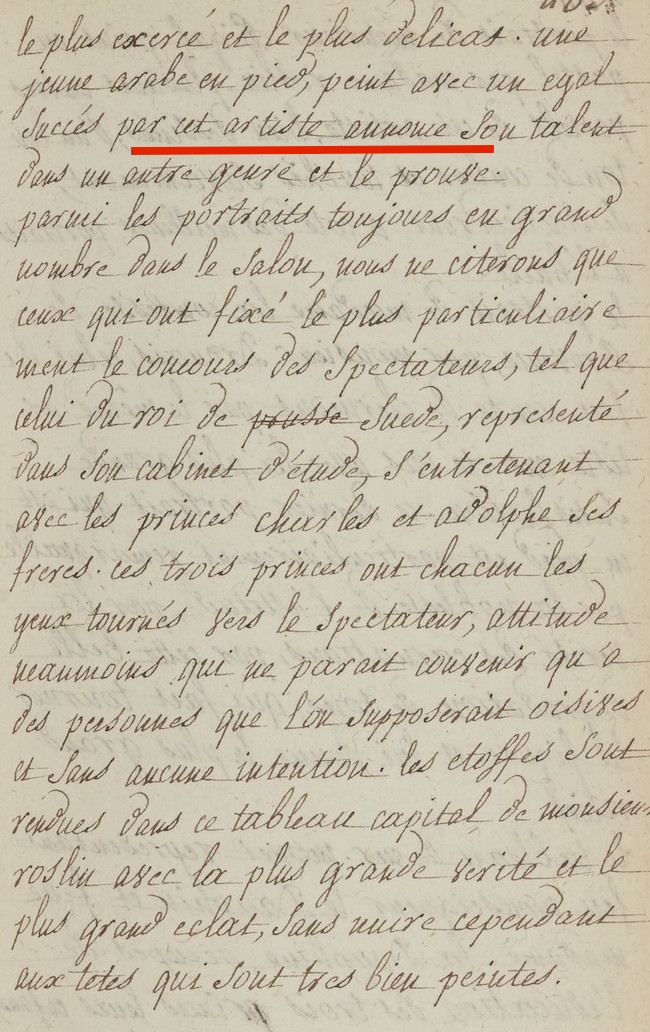 le plus exercé et le plus delicat. une
jeune arabe en pied, peint avec un egal
succés par cet artiste annonce son talent
dans un autre genre et le prouve.
parmi les portraits toujours en grand
nombre dans le salon, nous ne citerons que
ceux qui ont fixé le plus particuliaire
ment le concours des spectateurs, tel que
celui du roi de prusse suede, representé
dans son cabinet d'étude, s'entretenant
avec les princes charles et adolphe ses
freres. ces trois princes ont chacun les
yeux tournés vers le spectateur, attitude
neanmoins qui ne parait convenir qu'a
des personnes que l'on supposerait oisives
et sans aucune intention. les etoffes sont
rendues dans ce tableau capital de monsieur
roslin avec la plus grande verité et le
plus grand eclat, sans nuire cependant
aux tetes qui sont tres bien peintes.